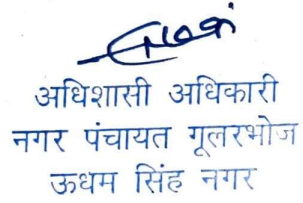 अधिशासी अधिकारी
नगर पंचायत गूलरभोज
ऊधम सिंह नगर